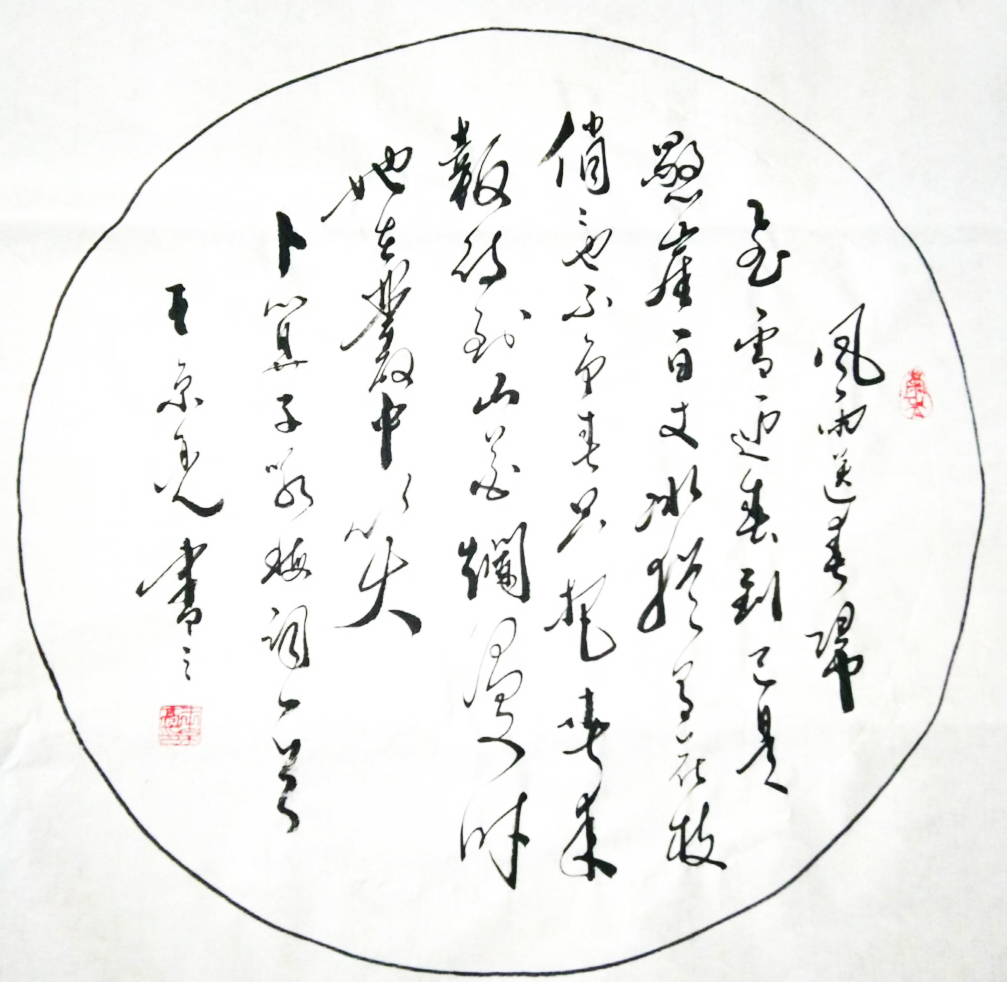 風雨送春歸
飛雪迎春到已是
懸崖百丈冰猶有花枝
俏也不爭春只把春來
報待到山花爛漫時
她在叢中笑
卜算子咏梅詞一首
王京書之